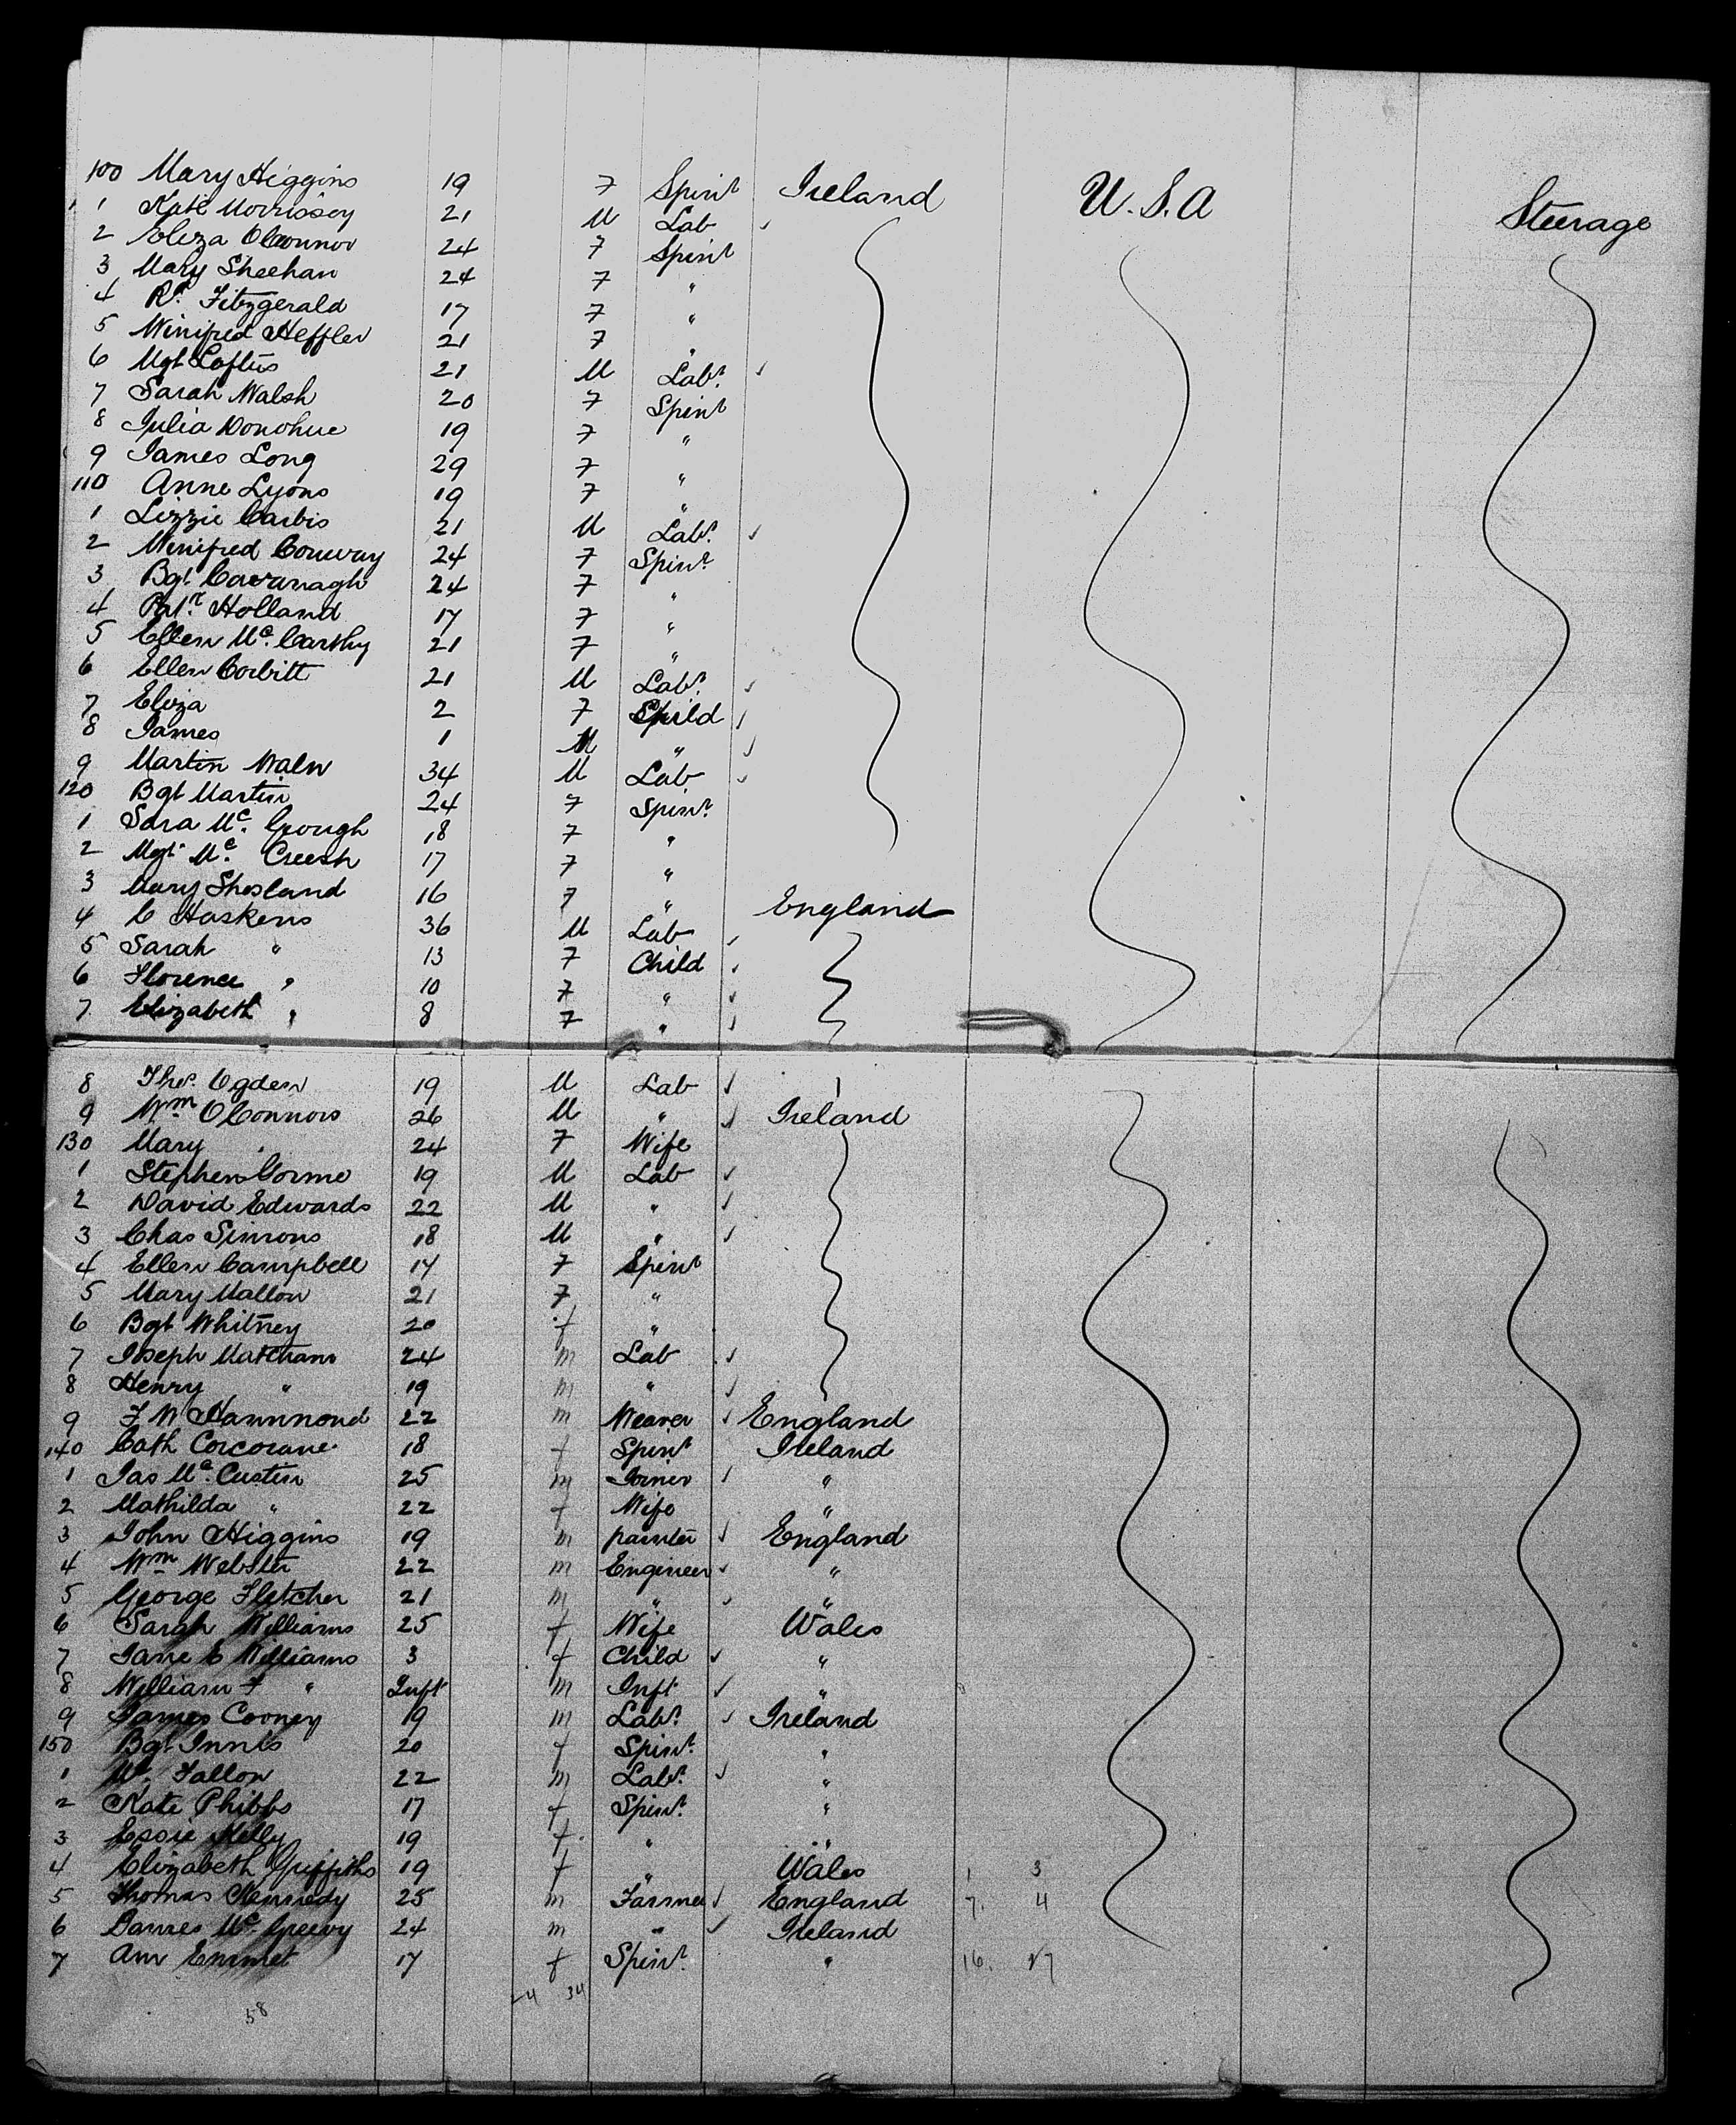 100 Mary Higgins 19 F Spinr Ireland U.S.A Steerage
1 Kate Morrissey 21 M Lab
2 Eliza OConnor 24 F Spinr
3 Mary Sheehan 24 F "
4 Rd. Fitzgerald 17 F "
5 Winifred Heffler 21 F "
6 Mgt Loftus 21 M Labr.
7 Sarah Walsh 20 F Spinr
8 Julia Donohue 19 F "
9 James Long 29 F "
110 Anne Lyons 19 F "
1 Lizzie Carbis 21 M Labr.
2 Winifred Conway 24 F Spinr.
3 Bgt. Cavanagh 24 F "
4 Patr. Holland 17 F "
5 Ellen Mc. Carthy 21 F "
6 Ellen Corbitt 21 M Labr.
7 Eliza 2 F Child
8 James 1 M "
9 Martin Waln 34 M Lab
120 Bgt Martin 24 F Spinr.
1 Sara Mc. Gough 18 F "
2 Mgt. Mc. Creesh 17 F "
3 Mary Shosland 16 F "
4 C Haskens 36 M Lab England
5 Sarah " 13 F Child
6 Florence " 10 F "
7 Elizabeth " 8 F "
8 Thos. Ogden 19 M Lab
9 Wm OConnors 26 M " Ireland
130 Mary " 24 F Wife
1 Stephen Gorme 19 M Lab
2 David Edwards 22 M "
3 Chas Simons 18 M "
4 Ellen Campbell 17 F Spinr
5 Mary Mallon 21 F "
6 Bgt Whitney 20 f "
7 Joseph Matcham 24 m Lab
8 Henry " 19 m "
9 F W Hammond 22 m Weaver England
140 Cath Corcorane 18 f Spinr Ireland
1 Jas Mc. Custin 25 m Joiner "
2 Mathilda " 22 f Wife "
3 John Higgins 19 m painter England
4 Wm Webster 22 m Engineer "
5 George Fletcher 21 m " "
6 Sarah Williams 25 f Wife Wales
7 Jane E Williams 3 f Child "
8 William F " Inft m Inft "
9 James Cooney 19 m Labr. Ireland
150 Bgt Innis 20 f Spinr. "
1 Fallon 22 m Labr. "
2 Kate Phibbs 17 f Spinr. "
3 Essie Kelly 19 f " "
4 Elizabeth Griffiths 19 f " Wales 1 3
5 Thomas Kennedy 25 m Farmer England 7. 4
6 James Mc. Greevy 24 m " Ireland
7 Ann Emmet 17 f Spinr. " 16.
24 34
58